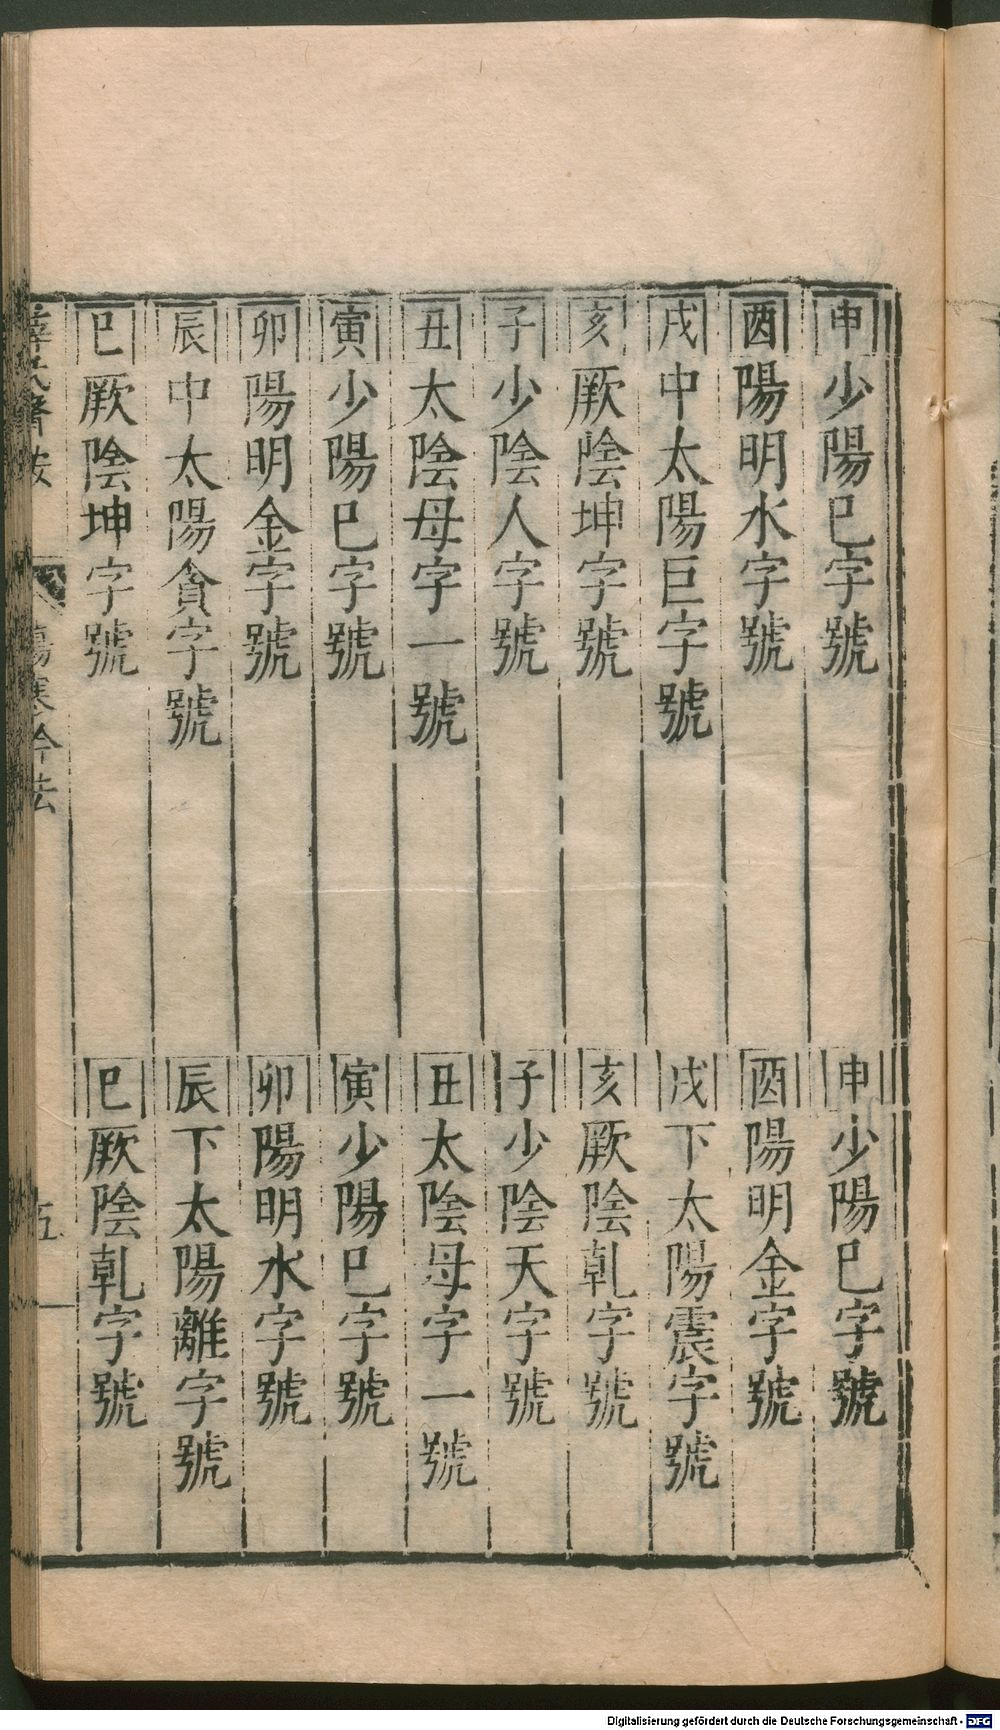 申少陽巳字號
酉陽明水字號
戌中太陽巨字號
亥厥陰坤字號
子少陰人字號
丑太陰母字一號
寅少陽巳字號
卯陽明金字號
辰中太陽貪字號
巳厥陰坤字號
申少陽巳字號
酉陽明金字號
戌下太陽震字號
亥厥陰乹字號
子少陰天字號
丑太陰母字一號
寅少陽巳字號
卯陽明水字號
辰下太陽離字號
巳厥陰乹字號
薛氏醫按
傷寒鈐法
五
Digitalisierung gefördert durch die Deutsche Forschungsgemeinschaft - DFG